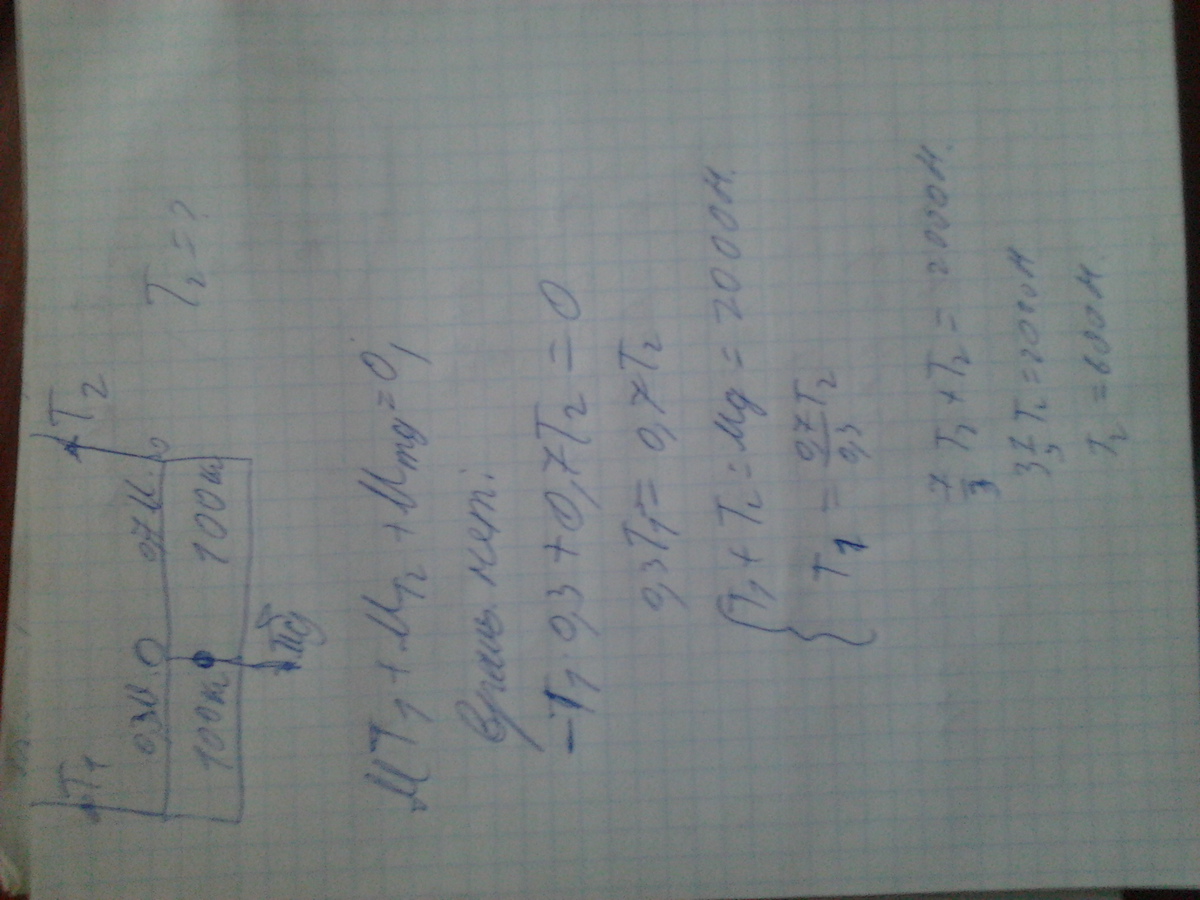 T1 T2
0,3м. О 0,7м. T2 = ?
100кг 100кг
mg
MT1 + MT2 + Mmg = 0,
Вращ. нет.
-T1 0,3 + 0,7T2 = 0
0,3T1 = 0,7T2
{ T1 + T2 = Mg = 2000Н.
T1 = 0,7/0,3 T2
7/3 T2 + T2 = 2000Н.
T2 = 2000Н
T2 = 600Н.